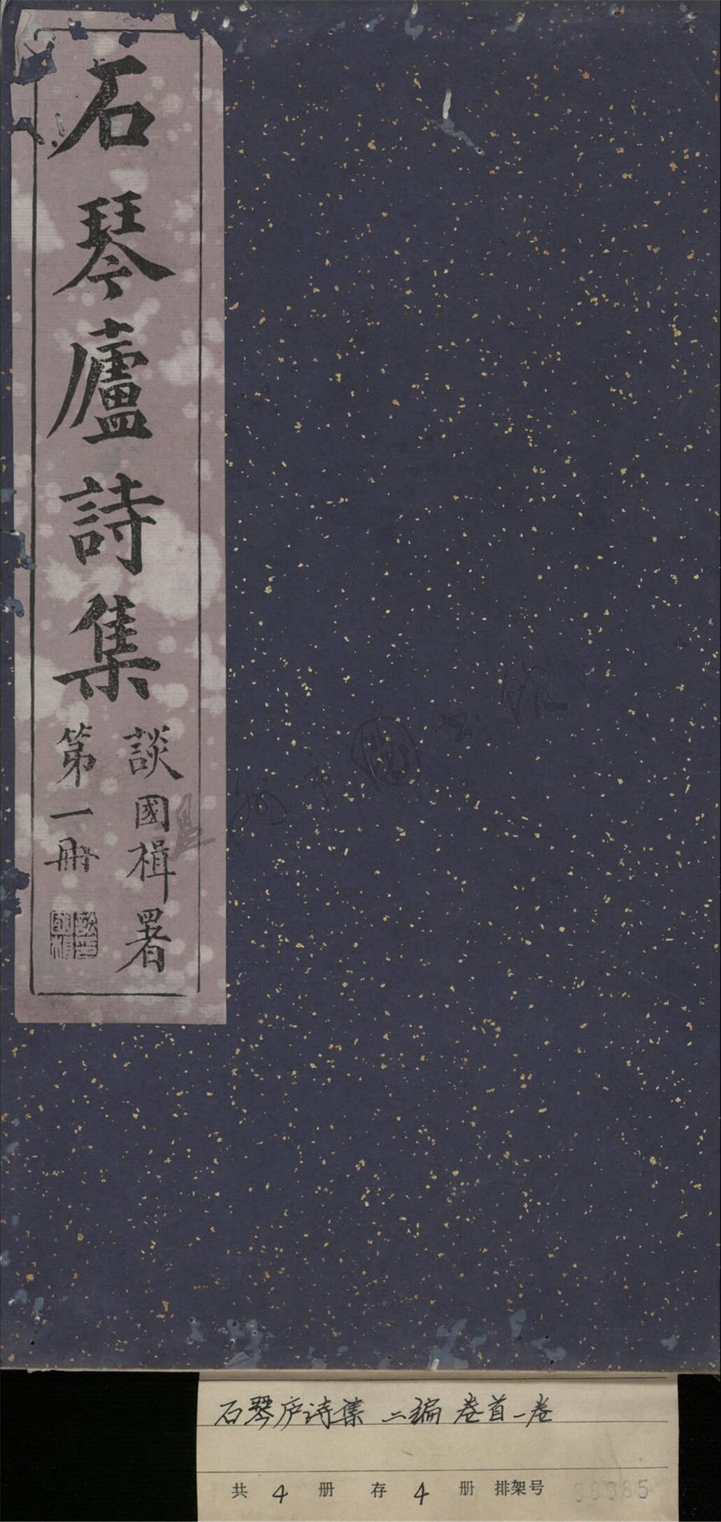 石琴廬詩集
談國楫署
第一冊
石琴庐诗集 二编 卷首一卷
共 4 册 存 4 册 排架号